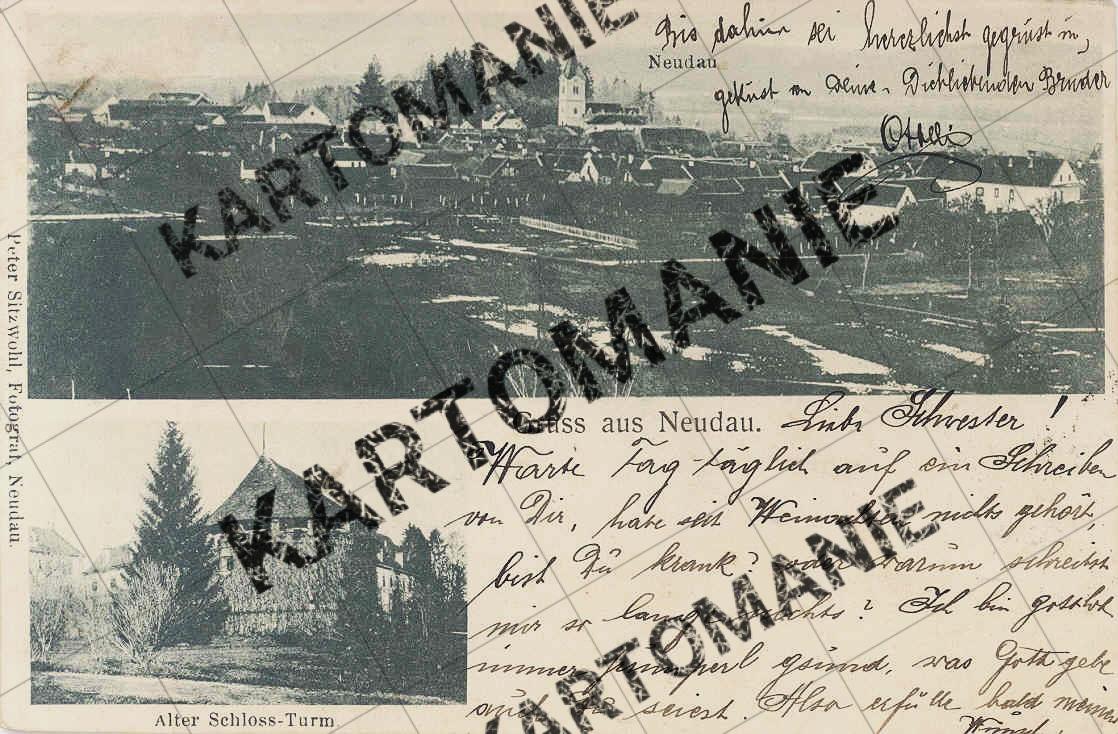 Bis dahin sei herzlichst gegrüst u,
Neudau.
geküst von Deine, Dichliebenden Bruder
Peter Sitzwohl, Fotograf, Neudau.
Gruss aus Neudau.
Liebe Schwester!
Warte Tag-täglich auf ein Schreiben
von Dir, habe seit Weinachten nichts gehört,
bist Du krank? oder warum schreibst
mir so lange nichts? Ich bin gottlob
immer gsund, was Gott gebe
auch Du seiest. Also erfülle bald meinen
Wunsch
Alter Schloss-Turm.
KARTOMANIE
KARTOMANIE
KARTOMANIE